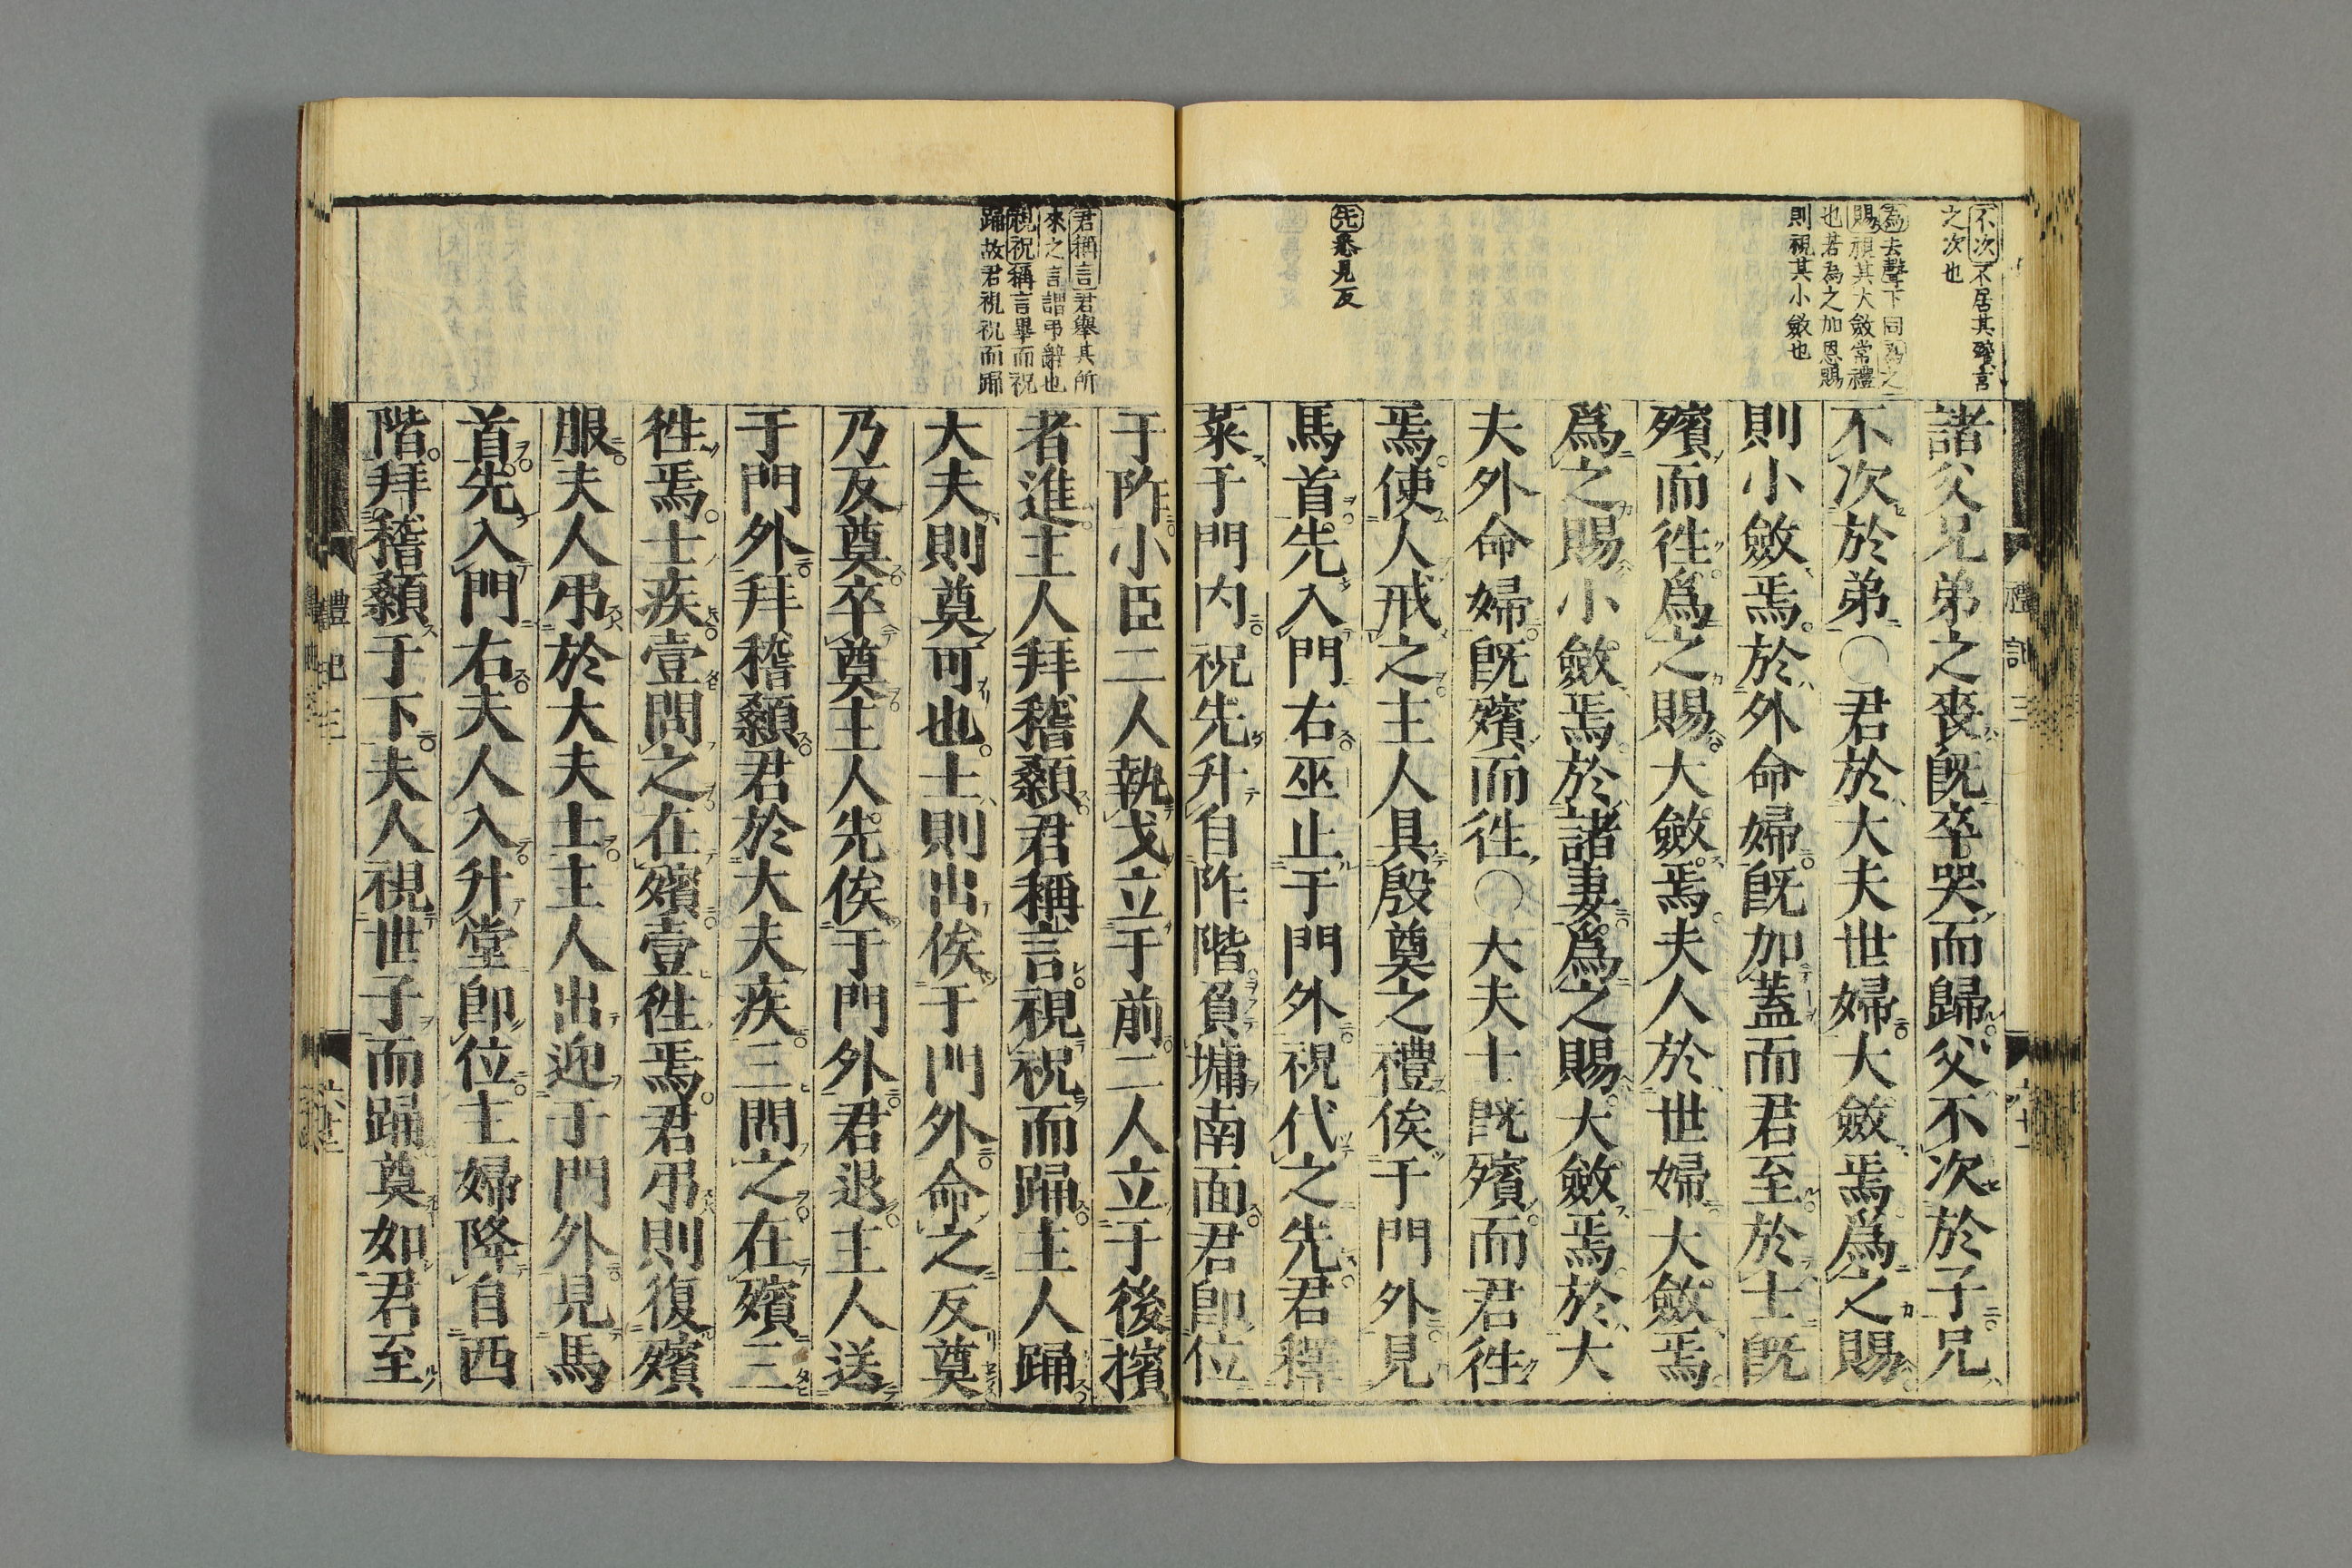 不次不居其殯宮
之次也
為去聲下同為之
賜視其大斂常禮
也若為之加恩賜
則視其小斂也
先悉見反
諸父兄弟之喪既卒哭而歸父不次於子兄
不次於弟○君於大夫世婦大斂焉爲之賜
則小斂焉於外命婦既加蓋而君至於士既
殯而徃爲之賜大斂焉夫人於世婦大斂焉
爲之賜小斂焉於諸妻爲之賜大斂焉於大
夫外命婦既殯而徃○大夫士既殯而君徃
焉使人戒之主人具殷奠之禮俟于門外見
馬首先入門右巫止于門外祝代之先君釋
菜于門内祝先升自阼階負墉南面君即位
君稱言君舉其所
來之言謂弔辭也
視祝稱言畢而祝
踊故君視祝而踊
于阼小臣二人執戈立于前二人立于後擯
者進主人拜稽顙君稱言視祝而踊主人踊
大夫則奠可也士則出俟于門外命之反奠
乃反奠卒奠主人先俟于門外君退主人送
于門外拜稽顙君於大夫疾三問之在殯三
徃焉士疾壹問之在殯壹徃焉君弔則復殯
服夫人弔於大夫士主人出迎于門外見馬
首先入門右夫人入升堂即位主婦降自西
階拜稽顙于下夫人視世子而踊奠如君至
禮記三